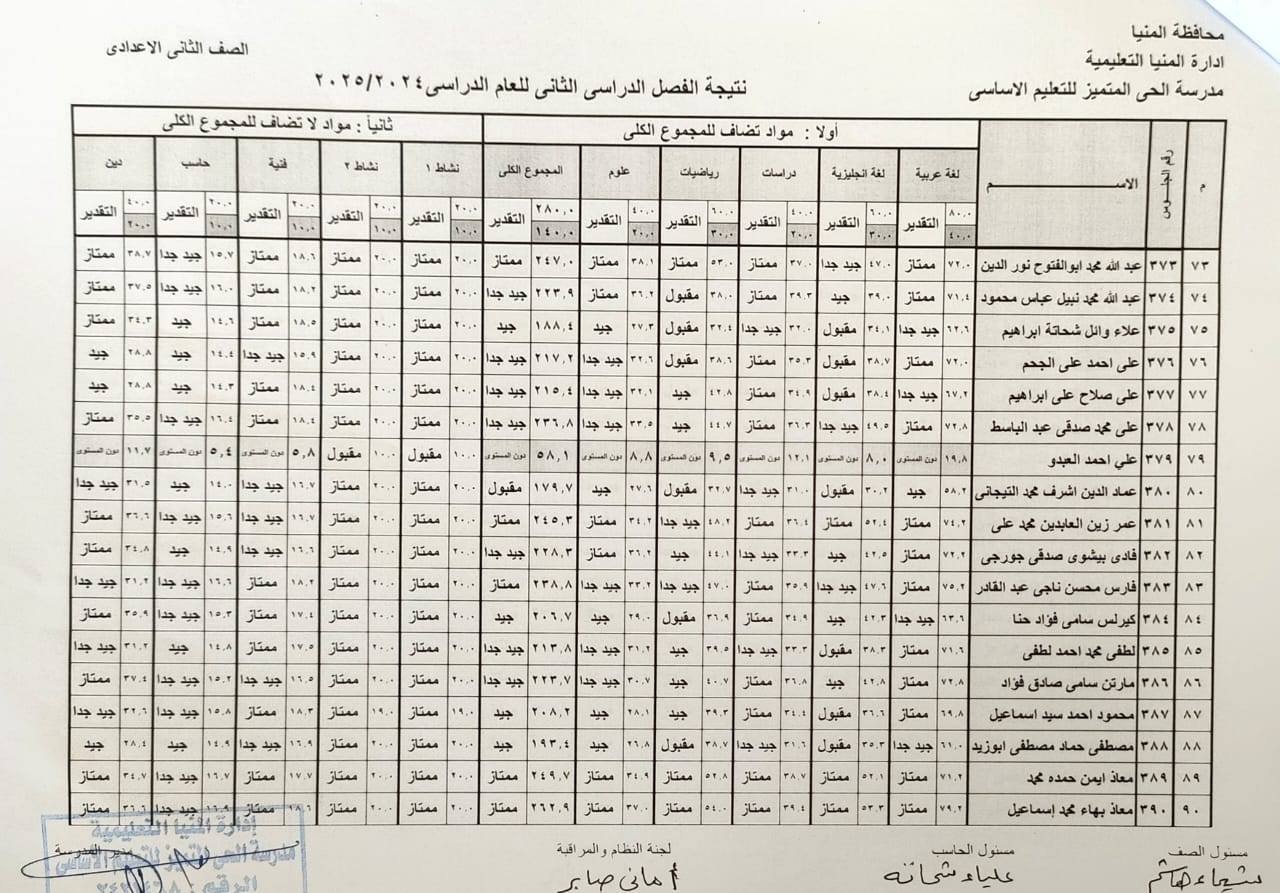 محافظة المنيا
ادارة المنيا التعليمية
مدرسة الحى المتميز للتعليم الاساسى
الصف الثانى الاعدادى
نتيجة الفصل الدراسى الثانى للعام الدراسى ٢٠٢٥/٢٠٢٤
أولا : مواد تضاف للمجموع الكلى ثانياً : مواد لا تضاف للمجموع الكلى
م رقم الجلوس الاســـم لغة عربية لغة انجليزية دراسات رياضيات علوم المجموع الكلى نشاط ١ نشاط ٢ فنية حاسب دين
٨٠,٠ التقدير ٦٠,٠ التقدير ٤٠,٠ التقدير ٦٠,٠ التقدير ٤٠,٠ التقدير ٢٨٠,٠ التقدير ٢٠,٠ التقدير ٢٠,٠ التقدير ٢٠,٠ التقدير ٢٠,٠ التقدير ٤٠,٠ التقدير
٤٠,٠ ٣٠,٠ ٢٠,٠ ٣٠,٠ ٢٠,٠ ١٤٠,٠ ١٠,٠ ١٠,٠ ١٠,٠ ١٠,٠ ٢٠,٠
٧٣ ٣٧٣ عبد الله محمد ابوالفتوح نور الدين ٧٢,٠ ممتاز ٤٧,٠ جيد جدا ٣٧,٠ ممتاز ٥٣,٠ ممتاز ٣٨,١ ممتاز ٢٤٧,٠ ممتاز ٢٠,٠ ممتاز ٢٠,٠ ممتاز ١٨,٦ ممتاز ١٥,٧ جيد جدا ٣٨,٧ ممتاز
٧٤ ٣٧٤ عبد الله محمد نبيل عباس محمود ٧١,٤ ممتاز ٣٩,٠ جيد ٣٩,٣ ممتاز ٣٨,٠ مقبول ٣٦,٢ ممتاز ٢٢٣,٩ جيد جدا ٢٠,٠ ممتاز ٢٠,٠ ممتاز ١٨,٢ ممتاز ١٦,٠ جيد جدا ٣٧,٥ ممتاز
٧٥ ٣٧٥ علاء وائل شحاتة ابراهيم ٦٢,٦ جيد جدا ٣٤,١ مقبول ٣٢,٠ جيد جدا ٣٢,٤ مقبول ٢٧,٣ جيد ١٨٨,٤ جيد ٢٠,٠ ممتاز ٢٠,٠ ممتاز ١٨,٥ ممتاز ١٤,٦ جيد ٣٤,٣ ممتاز
٧٦ ٣٧٦ على احمد على الجحم ٧٢,٠ ممتاز ٣٨,٧ مقبول ٣٥,٣ ممتاز ٣٨,٦ مقبول ٣٢,٦ جيد جدا ٢١٧,٢ جيد جدا ٢٠,٠ ممتاز ٢٠,٠ ممتاز ١٥,٩ جيد جدا ١٤,٤ جيد ٢٨,٨ جيد
٧٧ ٣٧٧ على صلاح على ابراهيم ٦٧,٢ جيد جدا ٣٨,٤ مقبول ٣٤,٩ ممتاز ٤٢,٨ جيد ٣٢,١ جيد جدا ٢١٥,٤ جيد جدا ٢٠,٠ ممتاز ٢٠,٠ ممتاز ١٨,٤ ممتاز ١٤,٣ جيد ٢٨,٨ جيد
٧٨ ٣٧٨ على محمد صدقى عبد الباسط ٧٢,٨ ممتاز ٤٩,٥ جيد جدا ٣٦,٣ ممتاز ٤٤,٧ جيد ٣٣,٥ جيد جدا ٢٣٦,٨ جيد جدا ٢٠,٠ ممتاز ٢٠,٠ ممتاز ١٨,٤ ممتاز ١٦,٤ جيد جدا ٣٥,٥ ممتاز
٧٩ ٣٧٩ علي احمد العبدو ١٩,٨ دون المستوى ٨,٠ دون المستوى ١٢,١ دون المستوى ٩,٥ دون المستوى ٨,٨ دون المستوى ٥٨,١ دون المستوى ١٠,٠ مقبول ١٠,٠ مقبول ٥,٨ دون المستوى ٥,٤ دون المستوى ١١,٧ دون المستوى
٨٠ ٣٨٠ عماد الدين اشرف محمد التيجانى ٥٨,٢ جيد ٣٠,٢ مقبول ٣١,٠ جيد جدا ٣٢,٧ مقبول ٢٧,٦ جيد ١٧٩,٧ مقبول ٢٠,٠ ممتاز ٢٠,٠ ممتاز ١٦,٧ جيد جدا ١٤,٠ جيد ٣١,٥ جيد جدا
٨١ ٣٨١ عمر زين العابدين محمد على ٧٤,٢ ممتاز ٥٢,٤ ممتاز ٣٦,٤ ممتاز ٤٨,٢ جيد جدا ٣٤,٢ ممتاز ٢٤٥,٣ ممتاز ٢٠,٠ ممتاز ٢٠,٠ ممتاز ١٦,٧ جيد جدا ١٥,٦ جيد جدا ٣٦,٦ ممتاز
٨٢ ٣٨٢ فادى بيشوى صدقى جورجى ٧٢,٢ ممتاز ٤٢,٥ جيد ٣٣,٣ جيد جدا ٤٤,١ جيد ٣٦,٢ ممتاز ٢٢٨,٣ جيد جدا ٢٠,٠ ممتاز ٢٠,٠ ممتاز ١٦,٦ جيد جدا ١٤,٩ جيد ٣٤,٨ ممتاز
٨٣ ٣٨٣ فارس محسن ناجى عبد القادر ٧٥,٢ ممتاز ٤٧,٦ جيد جدا ٣٥,٩ ممتاز ٤٧,٠ جيد جدا ٣٣,٢ جيد جدا ٢٣٨,٨ ممتاز ٢٠,٠ ممتاز ٢٠,٠ ممتاز ١٨,٢ ممتاز ١٦,٦ جيد جدا ٣١,٢ جيد جدا
٨٤ ٣٨٤ كيرلس سامى فؤاد حنا ٦٣,٦ جيد جدا ٤٢,٣ جيد ٣٤,٩ ممتاز ٣٦,٩ مقبول ٢٩,٠ جيد ٢٠٦,٧ جيد ٢٠,٠ ممتاز ٢٠,٠ ممتاز ١٧,٤ ممتاز ١٥,٣ جيد جدا ٣٥,٩ ممتاز
٨٥ ٣٨٥ لطفى محمد احمد لطفى ٧١,٦ ممتاز ٣٨,٣ مقبول ٣٣,٣ جيد جدا ٣٩,٥ جيد ٣١,٢ جيد جدا ٢١٣,٨ جيد جدا ٢٠,٠ ممتاز ٢٠,٠ ممتاز ١٧,٥ ممتاز ١٤,٨ جيد ٣١,٢ جيد جدا
٨٦ ٣٨٦ مارتن سامى صادق فؤاد ٧٢,٨ ممتاز ٤٢,٨ جيد ٣٦,٨ ممتاز ٤٠,٧ جيد ٣٠,٧ جيد جدا ٢٢٣,٧ جيد جدا ٢٠,٠ ممتاز ٢٠,٠ ممتاز ١٦,٥ جيد جدا ١٥,٢ جيد جدا ٣٧,٤ ممتاز
٨٧ ٣٨٧ محمود احمد سيد اسماعيل ٦٩,٨ ممتاز ٣٦,٦ مقبول ٣٤,٤ ممتاز ٣٩,٣ جيد ٢٨,١ جيد ٢٠٨,٢ جيد ١٩,٠ ممتاز ١٩,٠ ممتاز ١٨,٣ ممتاز ١٥,٨ جيد جدا ٣٢,٦ جيد جدا
٨٨ ٣٨٨ مصطفى حماد مصطفى ابوزيد ٦١,٠ جيد جدا ٣٥,٣ مقبول ٣١,٦ جيد جدا ٣٨,٧ مقبول ٢٦,٨ جيد ١٩٣,٤ جيد ٢٠,٠ ممتاز ٢٠,٠ ممتاز ١٦,٩ جيد جدا ١٤,٩ جيد ٢٨,٤ جيد
٨٩ ٣٨٩ معاذ ايمن حمده محمد ٧١,٢ ممتاز ٥٢,١ ممتاز ٣٨,٧ ممتاز ٥٢,٨ ممتاز ٣٤,٩ ممتاز ٢٤٩,٧ ممتاز ٢٠,٠ ممتاز ٢٠,٠ ممتاز ١٧,٧ ممتاز ١٦,٧ جيد جدا ٣٤,٧ ممتاز
٩٠ ٣٩٠ معاذ بهاء محمد إسماعيل ٧٩,٢ ممتاز ٥٣,٣ ممتاز ٣٩,٤ ممتاز ٥٤,٠ ممتاز ٣٧,٠ ممتاز ٢٦٢,٩ ممتاز ٢٠,٠ ممتاز ٢٠,٠ ممتاز ١٨,٦ ممتاز ١٦,٩ جيد جدا ٣٦,٦ ممتاز
مسئول الصف مسئول الحاسب لجنة النظام والمراقبة مدير المدرسة
شيماء هاشم علياء شحاته أمانى صابر
إدارة المنيا التعليمية
مدرسة الحى المتميز للتعليم الأساسى
الرقم :